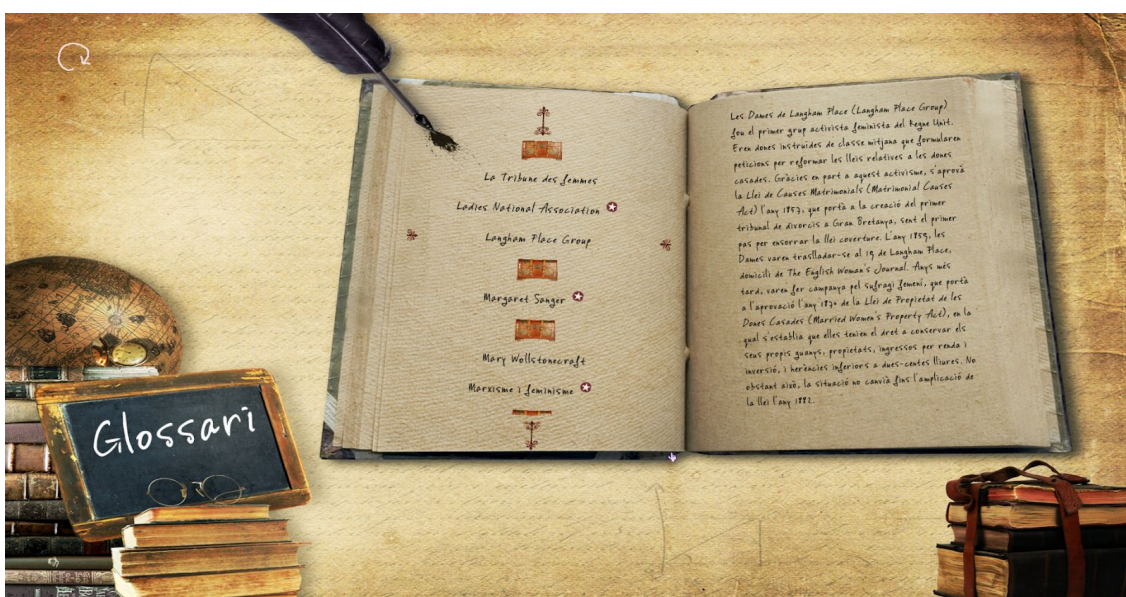 La Tribune des femmes
Ladies National Association
Langham Place Group
Margaret Sanger
Mary Wollstonecraft
Marxisme i feminisme
Glossari
Les Dames de Langham Place (Langham Place Group)
fou el primer grup activista feminista del Regne Unit.
Eren dones instruïdes de classe mitjana que formularen
peticions per reformar les lleis relatives a les dones
casades. Gràcies en part a aquest activisme, s'aprovà
la Llei de Causes Matrimonials (Matrimonial Causes
Act) l'any 1857, que portà a la creació del primer
tribunal de divorcis a Gran Bretanya, sent el primer
pas per ensorrar la llei coverture. L'any 1859, les
Dames varen traslladar-se al 19 de Langham Place,
domicili de The English Woman's Journal. Anys més
tard, varen fer campanya pel sufragi femení, que portà
a l'aprovació l'any 1870 de la Llei de Propietat de les
Dones Casades (Married Women's Property Act), en la
qual s'establia que elles tenien el dret a conservar els
seus propis guanys, propietats, ingressos per renda i
inversió, i herències inferiors a dues-centes lliures. No
obstant això, la situació no canvià fins l'amplicació de
la llei l'any 1882.